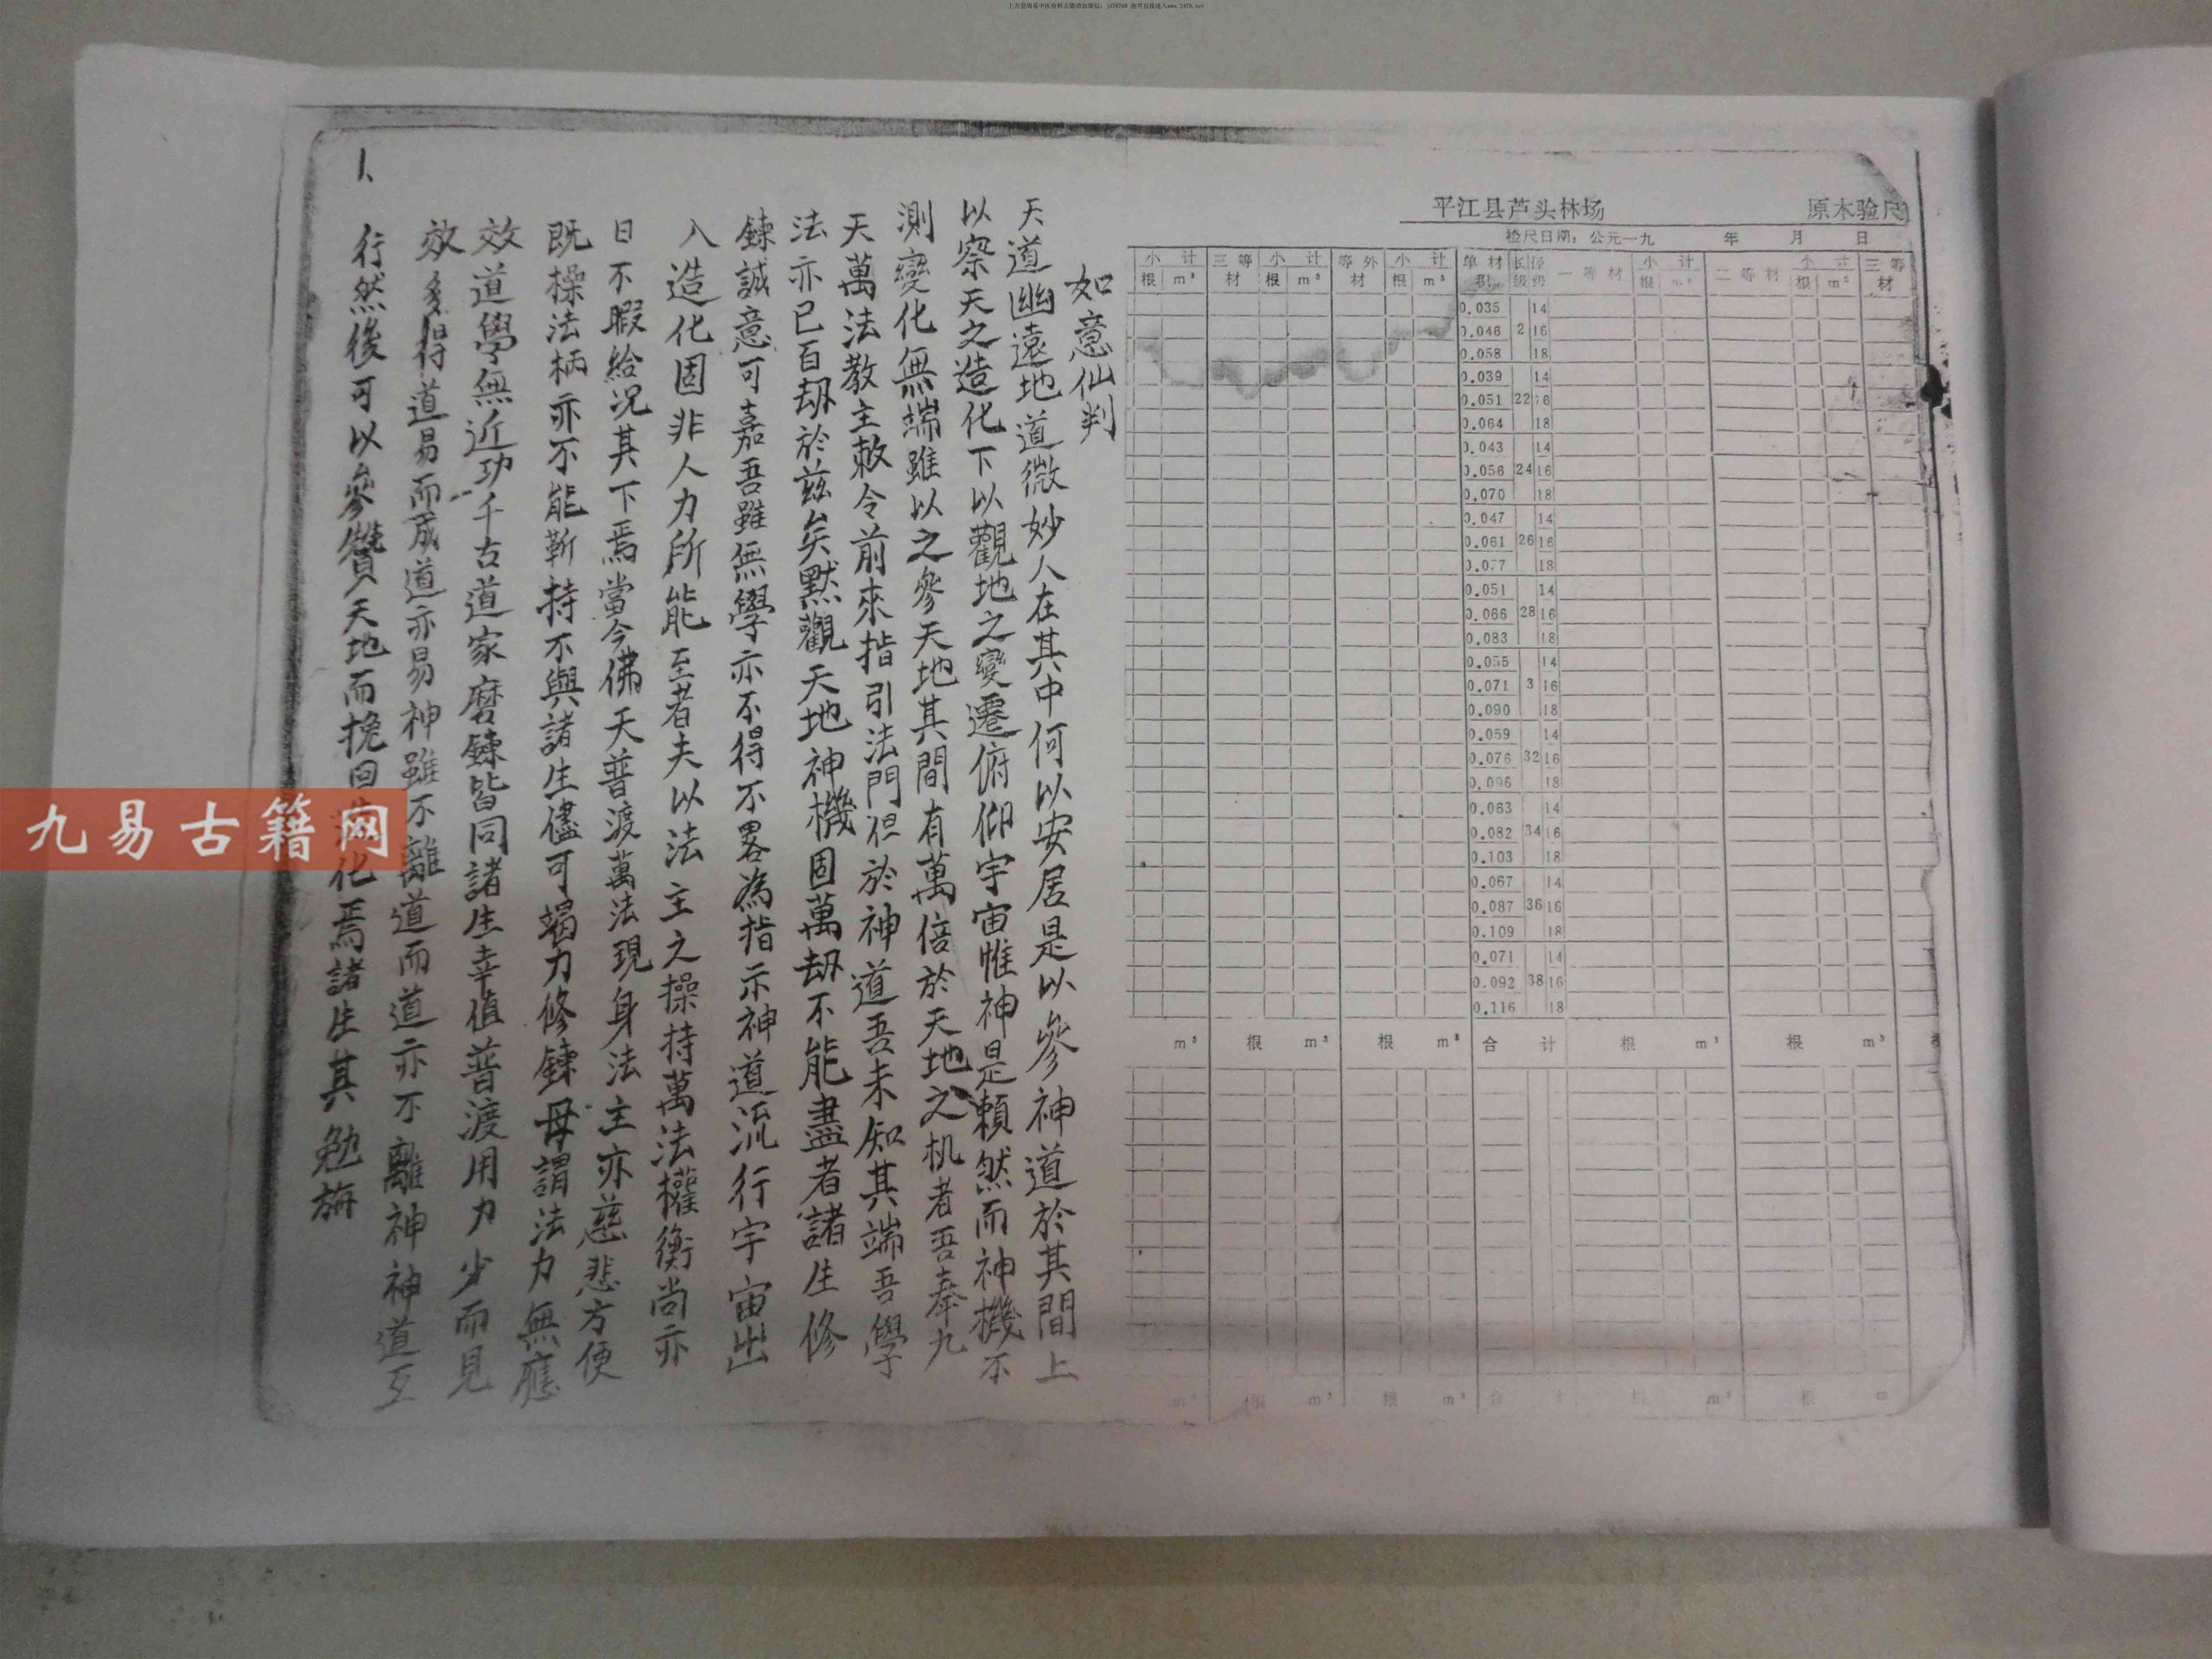 如意仙判
天道幽遠地道微妙人在其中何以安居是以參神道於其間上
以察天之造化下以觀地之變遷俯仰宇宙惟神是賴然而神機不
測變化無端雖以之參天地其間有萬倍於天地之机者吾奉九
天萬法教主敕令前來指引法門但於神道吾未知其端吾學
法亦已百刼於兹矣默觀天地神機固萬刼不能盡者諸生修
鍊誠意可嘉吾雖無學亦不得不畧為指示神道流行宇宙出
入造化固非人力所能至者夫以法主之操持萬法權衡尚亦
日不暇給况其下焉當今佛天普渡萬法現身法主亦慈悲方便
既操法柄亦不能靳持不與諸生儘可竭力修鍊毋謂法力無應
效道學無近功千古道家磨鍊皆同諸生幸值普渡用力少而見
效多得道易而成道亦易神雖不離道而道亦不離神神道互
行然後可以參贊天地而挽回造化焉諸生其勉旃
1、
平江县芦头林场 原木验尺
检尺日期：公元一九 年 月 日
小计 三等材 小计 等外材 小计 单材积 长级 径级 一等材 小计 二等材 小计 三等材
根 m³ 根 m³ 根 m³ 根 m³ 根 m³
0.035 14
0.046 2 16
0.058 18
0.039 14
0.051 22 16
0.064 18
0.043 14
0.056 24 16
0.070 18
0.047 14
0.061 26 16
0.077 18
0.051 14
0.066 28 16
0.083 18
0.055 14
0.071 3 16
0.090 18
0.059 14
0.076 32 16
0.096 18
0.063 14
0.082 34 16
0.103 18
0.067 14
0.087 36 16
0.109 18
0.071 14
0.092 38 16
0.116 18
m³ 根 m³ 根 m³ 合计 根 m³ 根 m³
m³ 根 m³ 根 m³ 合计 根 m³ 根
九易古籍网